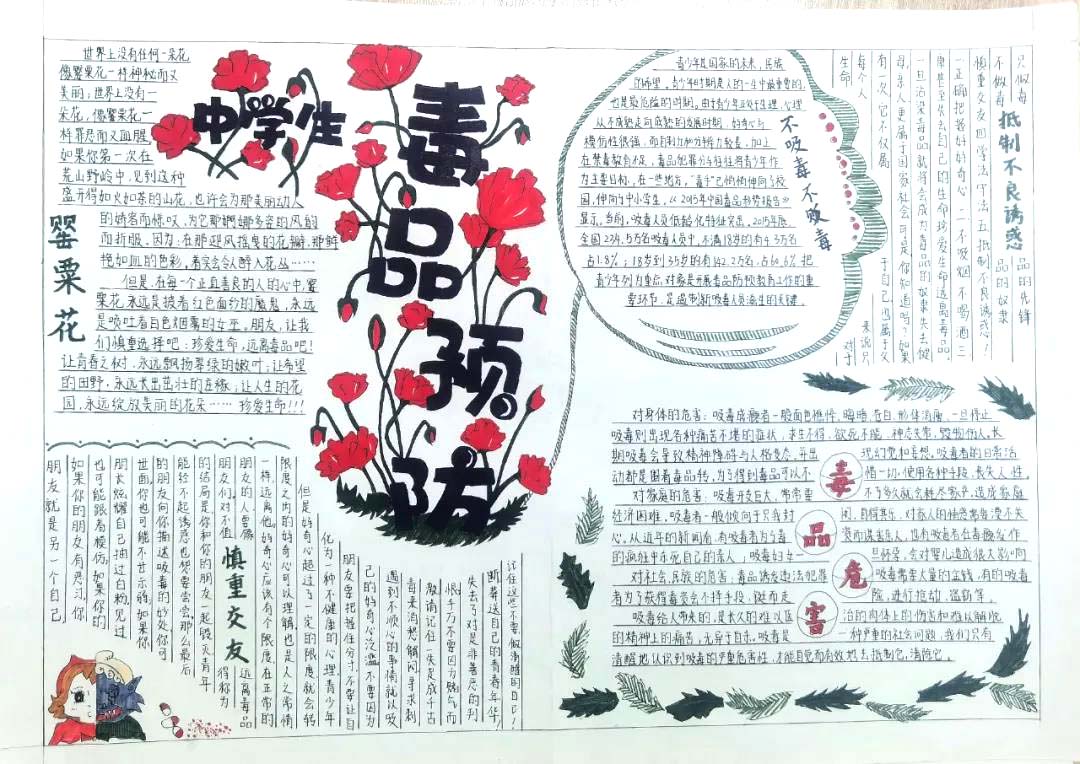 中学生
毒品预防
世界上没有任何一朵花
像罂粟花一样神秘而又
美丽；世界上没有一
朵花，像罂粟花一
样罪恶而又血腥
如果你第一次在
荒山野岭中，见到这种
盛开得如火如荼的山花，也许会为那美丽动人
的娇容而惊叹，为它那婀娜多姿的风韵
而折服，因为：在那迎风摇曳的花瓣，那鲜
艳如血的色彩，着实会令人醉入花丛……
但是，在每个正直善良的人的心中，罂
粟花，永远是披着红色面纱的魔鬼，永远
是喷吐着白色烟雾的女巫。朋友，让我
们慎重选择吧：珍爱生命，远离毒品吧！
让青春之树，永远飘扬翠绿的嫩叶；让希望
的田野，永远长出茁壮的连椽；让人生的花
园，永远绽放美丽的花朵……珍爱生命！！！
罂粟花
朋友就是另一个自己
如果你的朋友有恶习，你
也可能跟着模仿；如果你的
朋友炫耀自己抽过白粉，见过
世面，你也可能不甘示弱；如果你
的朋友向你描述吸毒的妙处，你可
能经不起诱惑也想要尝尝，那么最后
的结局是你和你的朋友一起毁灭，青年
朋友们，对不值
得称为
慎重交友
朋友的人要慎
远离毒品
一样，远离他。好奇心应该有个限度，在正常的
限度之内的好奇心可以理解，也是人之常情
但是好奇心超过了一定的限度，就会转
化为一种不健康的心理，青少年
朋友要把握住分寸，不要让自
己的好奇心泛滥，不要因为
遇到不顺心的事情就以吸
毒来消愁解闷寻求刺
激，请记住一失足成千古
恨，千万不要因为赌气而
失去了对是非善恶的判
断，葬送自己的青春年华！
记住这些，不要做清醒的自己！
青少年是国家的未来，民族
的希望。青少年时期是人的一生中最重要的，
也是最危险的时期。由于青少年正处于生理、心理
从不成熟走向成熟的发展时期，好奇心与
模仿性很强，而自制力和分辨力较差，加上
在禁毒教育不足，毒品犯罪分子往往将青少年作
为主要目标，在一些地方，“毒手”已悄悄伸向了校
园，伸向了中小学生，《2015年中国毒品形势报告》
显示，当前，吸毒人员低龄化特征突出。2015年底
全国234.5万名吸毒人员中，不满18岁的有4.3万名
占1.8%；18岁到35岁的有142.2万名，占60.6%把
青少年列为重点对象是开展毒品防预教育工作的重
要环节，是遏制新吸毒人员滋生的关键。
不吸毒不贩毒
生命 对于
每个人 来说只
有一次，它不仅属 于自己，也属于父
母，亲人，更属于国家社会，可是你知道吗？如果
一旦沾染毒品就将会成为毒品的奴隶失去健
康甚至失去自己的生命珍爱生命远离毒品，
一正确把握好奇心，二不吸烟不喝酒三
慎重交友四学法守法五抵制不良诱惑！
抵制不良诱惑
不做毒 品的奴隶
只做毒 品的先锋
对身体的危害：吸毒成瘾者一般面色憔悴、晦暗、苍白、形体消瘦，一旦停止
吸毒则出现各种痛苦不堪的症状，求生不得，欲死不能，神志失常，毁物伤人。长
期吸毒会导致精神障碍与人格变态，并出 现幻觉和妄想。吸毒者的日常活
动都是围着毒品转，为了得到毒品可以不 惜一切，使用各种手段，丧失人性。
对家庭的危害：吸毒开支巨大，常常重 不了多久就会耗尽家产，造成家庭
经济困难。吸毒者一般倾向于只我封 闭，自得其乐，对家人的情感常常漠不关
心。从近年的新闻看，有吸毒者为了毒 资而谋害亲人，也有吸毒者在毒瘾发作
的疯狂中杀死自己的亲人，吸毒妇女一 旦怀孕，会对婴儿造成很大影响
对社会、民族的危害：毒品诱发违法犯罪 吸毒需要大量的金钱，有的吸毒
者为了获得毒资会不择手段，铤而走 险，进行抢劫、盗窃等，
吸毒给人带来的，是长久的难以医 治的肉体上的伤害和难以解脱
的精神上的痛苦，无异于自杀。吸毒是 一种严重的社会问题，我们只有
清醒地认识到吸毒的严重危害性，才能自觉而有效地去抵制它，清除它。
毒品危害